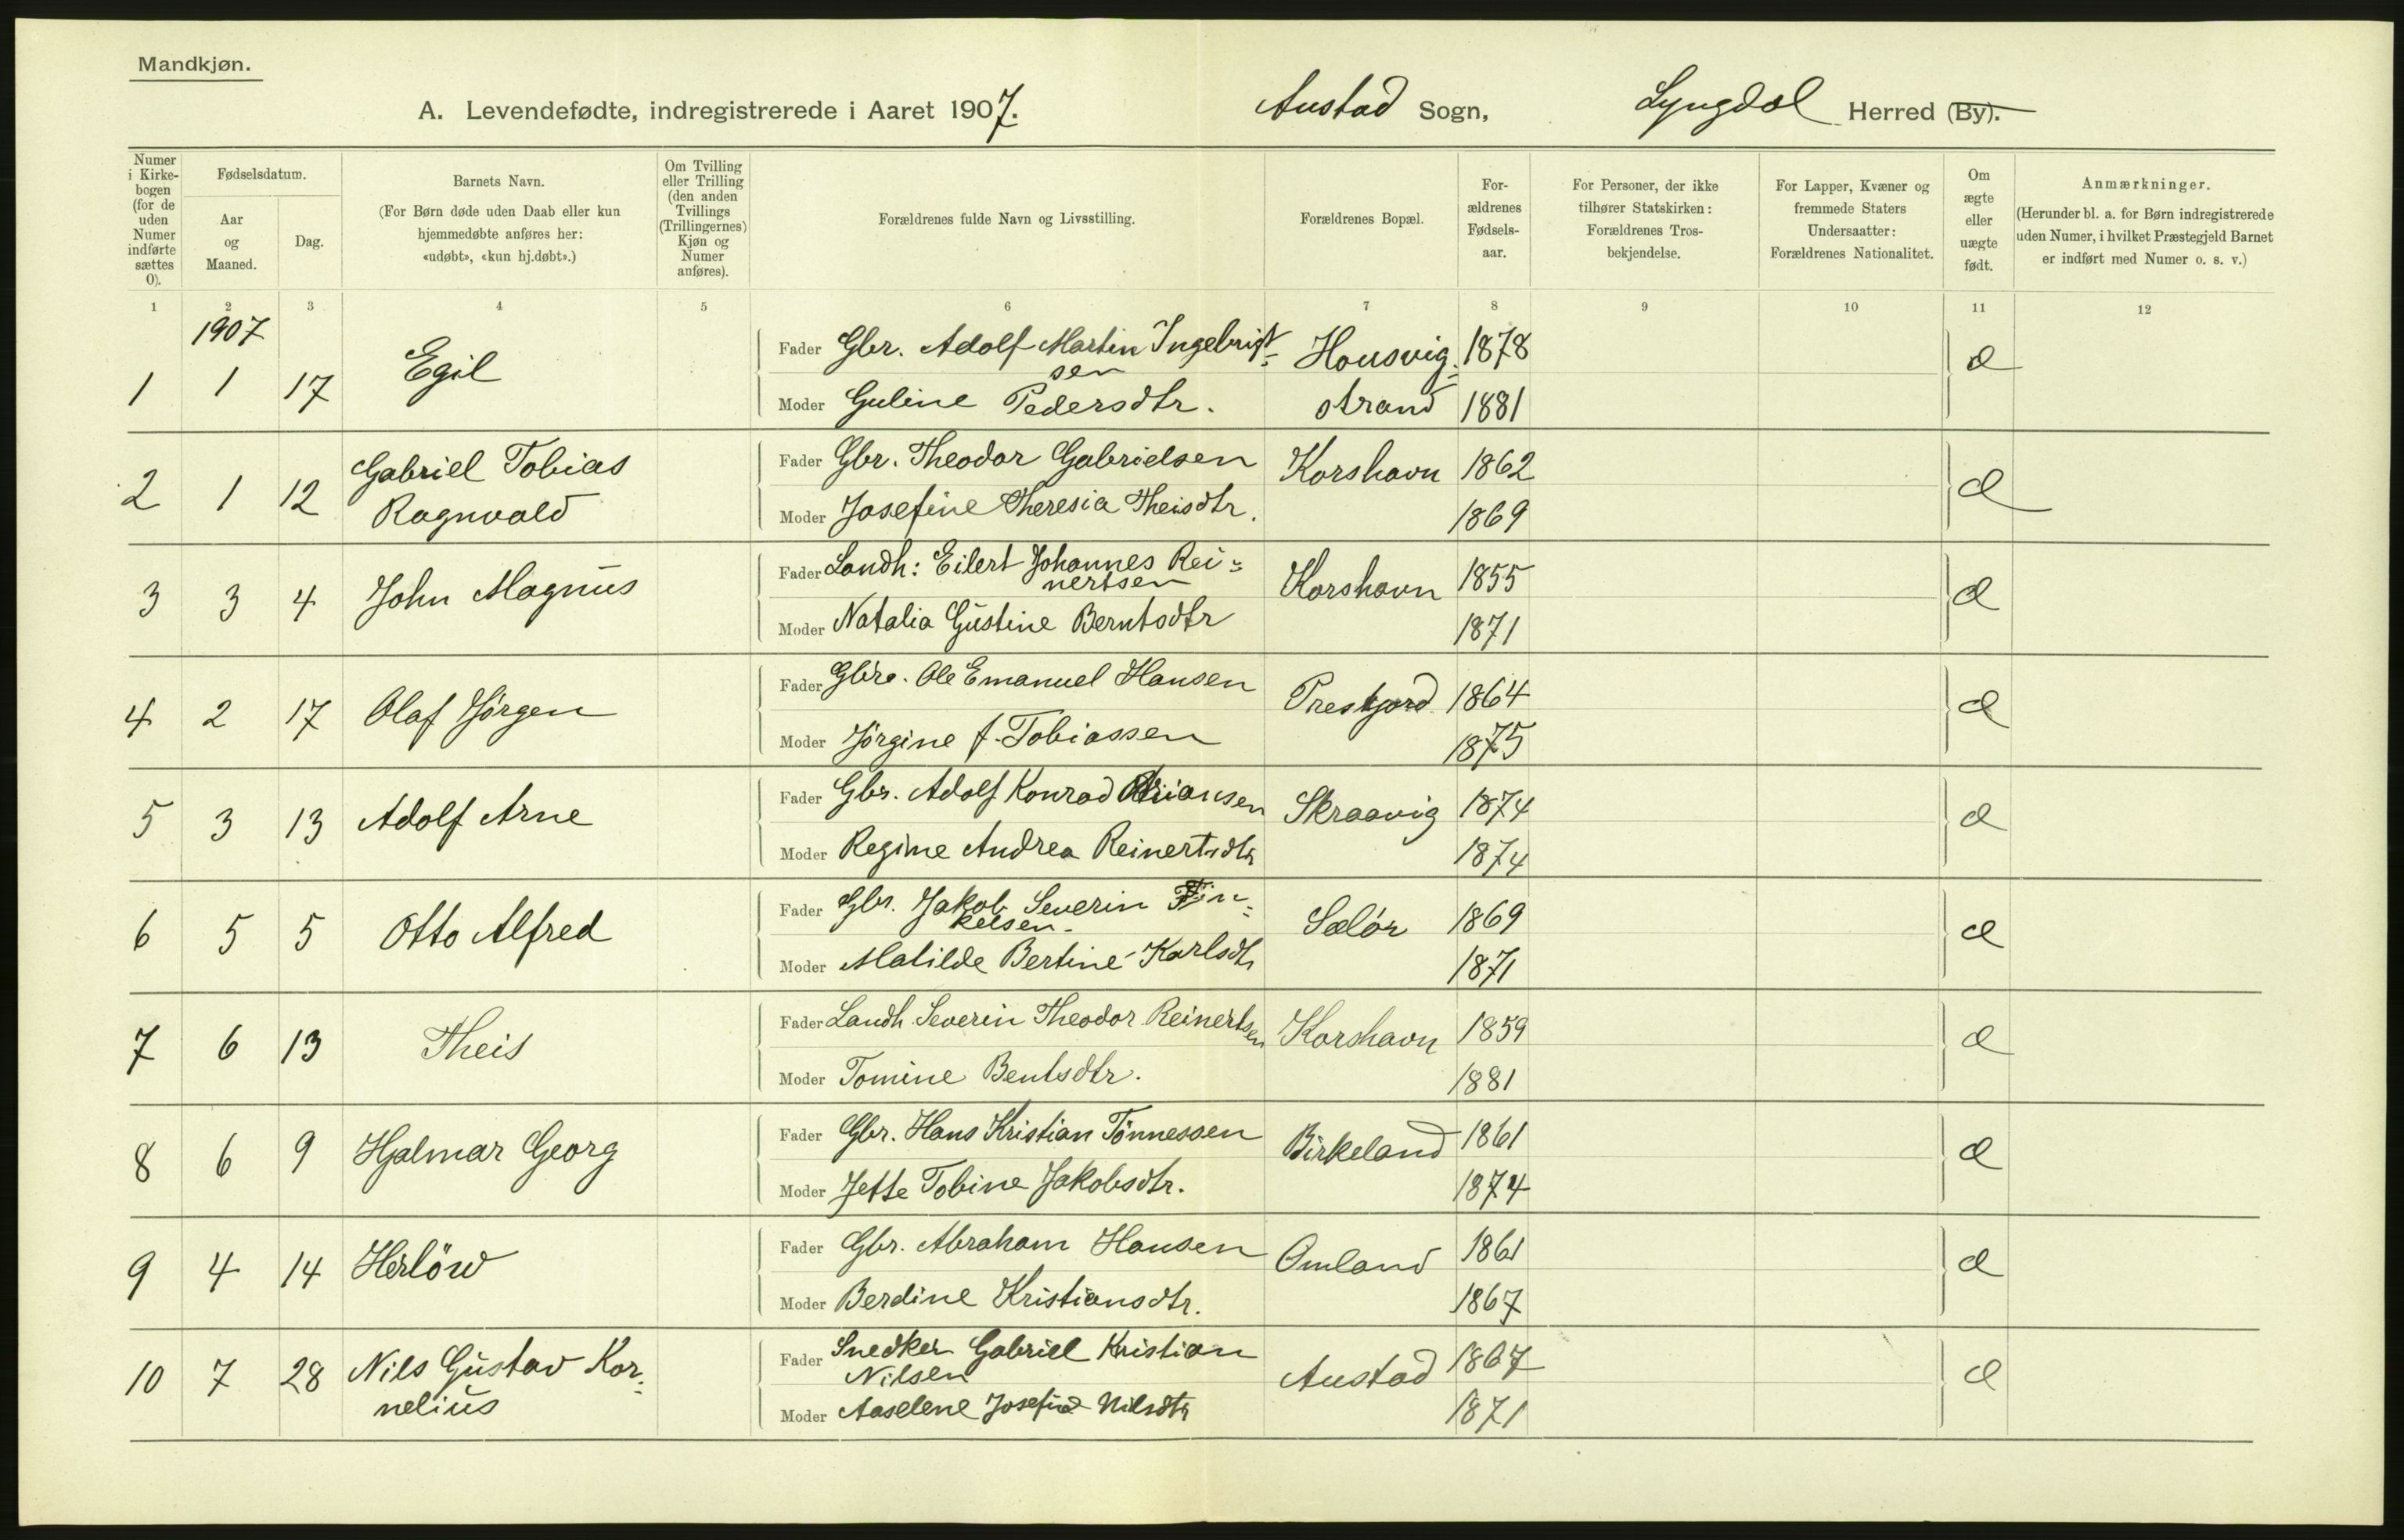 Mandkjøn.
A. Levendefødte, indregistrerede i Aaret 1907. Austad Sogn, Lyngdal Herred (By).
Numer i Kirkebogen (for de uden Numer indførte sættes 0).
Fødselsdatum.
Aar og Maaned.
Dag.
Barnets Navn.
(For Børn døde uden Daab eller kun hjemmedøbte anføres her: «udøbt», «kun hj.døbt».)
Om Tvilling eller Trilling (den anden Tvillings (Trillingernes) Kjøn og Numer anføres).
Forældrenes fulde Navn og Livsstilling.
Forældrenes Bopæl.
Forældrenes Fødselsaar.
For Personer, der ikke tilhører Statskirken: Forældrenes Trosbekjendelse.
For Lapper, Kvæner og fremmede Staters Undersaatter: Forældrenes Nationalitet.
Om ægte eller uægte født.
Anmærkninger.
(Herunder bl. a. for Børn indregistrerede uden Numer, i hvilket Præstegjeld Barnet er indført med Numer o. s. v.)
1 2 3 4 5 6 7 8 9 10 11 12
1907
1 1 17 Egil Fader Gbr. Adolf Martin Ingebrigt- Housvig- 1878 æ
sen
Moder Guline Pedersdtr. strand 1881
2 1 12 Gabriel Tobias Fader Gbr. Theodor Gabrielsen Korshavn 1862 æ
Ragnvald Moder Josefine Theresia Theisdtr. 1869
3 3 4 John Magnus Fader Landh: Eilert Johannes Rei- Korshavn 1855 æ
nertsen
Moder Natalia Gustine Berntsdtr 1871
4 2 17 Olaf Jørgen Fader Gbr. Ole Emanuel Hansen 1864 æ
Moder Jørgine f. Tobiassen 1875
5 3 13 Adolf Arne Fader Gbr. Adolf Konrad Skraavig 1874 æ
Moder Regine Andrea Reinertsdtr 1874
6 5 5 Otto Alfred Fader Gbr. Jakob Severin Fin- Selör 1869 æ
kelsen.
Moder Matilde Bertine Karlsdtr 1871
7 6 13 Theis Fader Landh. Severin Theodor Reinertsen Korshavn 1859 æ
Moder Tomine Bentsdtr. 1881
8 6 9 Hjalmar Georg Fader Gbr. Hans Kristian Tönnessen Birkeland 1861 æ
Moder Jette Tobine Jakobsdtr. 1874
9 4 14 Herlöw Fader Gbr. Abraham Hansen Omland 1861 æ
Moder Berdine Kristiansdtr. 1867
10 7 28 Nils Gustav Kor- Fader Snedker Gabriel Kristian Austad 1867 æ
nelius Nilsen
Moder Aaselene Josefine Nilsdtr 1871